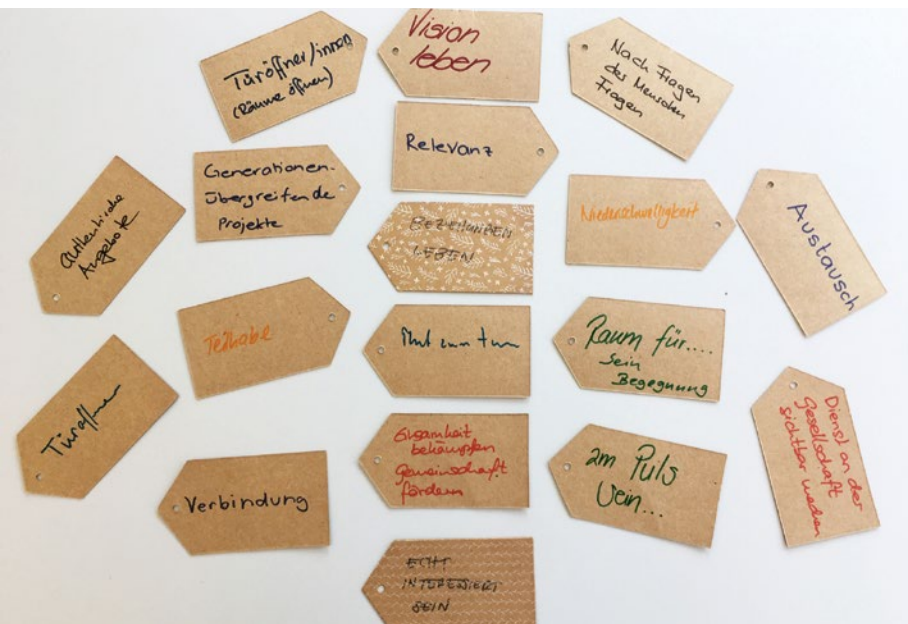 Türöffner/innen
(Räume öffnen)
Vision
leben
Nach Fragen
des Menschen
Fragen
Generationen-
übergreifende
Projekte
Relevanz
Authentische
Angebote
BEZIEHUNGEN
LEBEN
Niederschwelligkeit
Austausch
Teilhabe
Mut zum tun
Raum für....
Sein
Begegnung
Türöffner
Einsamkeit
bekämpfen
Gemeinschaft
fördern
Dienst an der
Gesellschaft
sichtbar machen
Verbindung
am Puls
sein...
ECHT
INTERESSIERT
SEIN